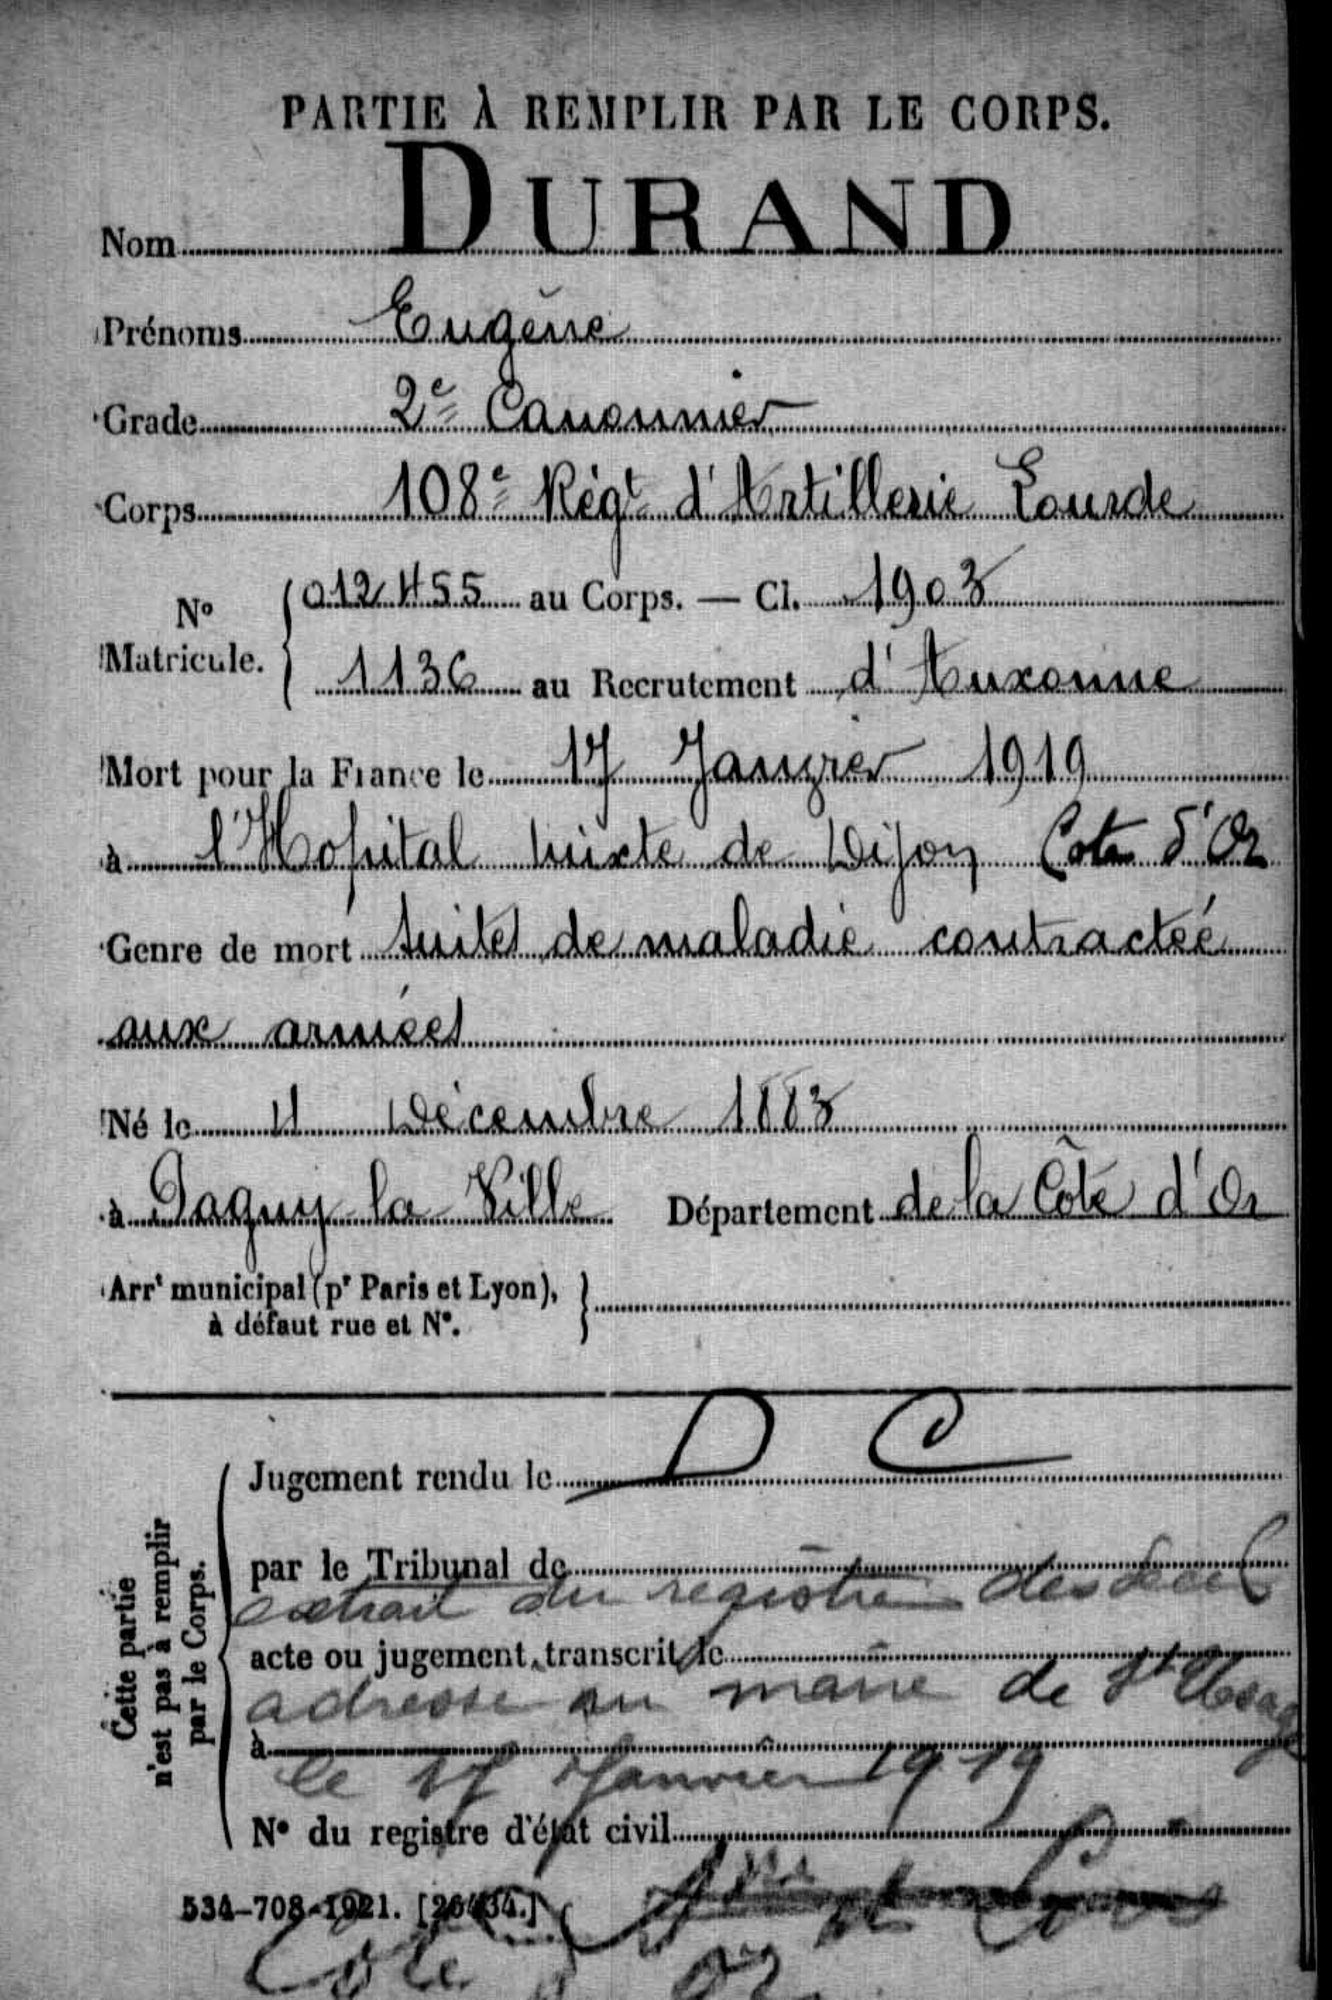 PARTIE À REMPLIR PAR LE CORPS.
Nom DURAND
Prénoms Eugène
Grade 2e Canonnier
Corps 108e Régt d'Artillerie Lourde
No Matricule. 012455 au Corps. — Cl. 1903
1136 au Recrutement d'Auxonne
Mort pour la France le 17 Janvier 1919
à l'Hopital mixte de Dijon Cote d'Or
Genre de mort suites de maladie contractée
aux armées
Né le 4 Décembre 1883
à Pagny la Ville Département de la Côte d'Or
Arrt municipal (pr Paris et Lyon),
à défaut rue et No.
Cette partie
n'est pas à remplir
par le Corps.
Jugement rendu le D C
par le Tribunal de
extrait du registre des deces
acte ou jugement transcrit le
adresse au maire de St Usage
à
le 17 Janvier 1919
No du registre d'état civil
534-708-1921. [26434.]
Côte d'or